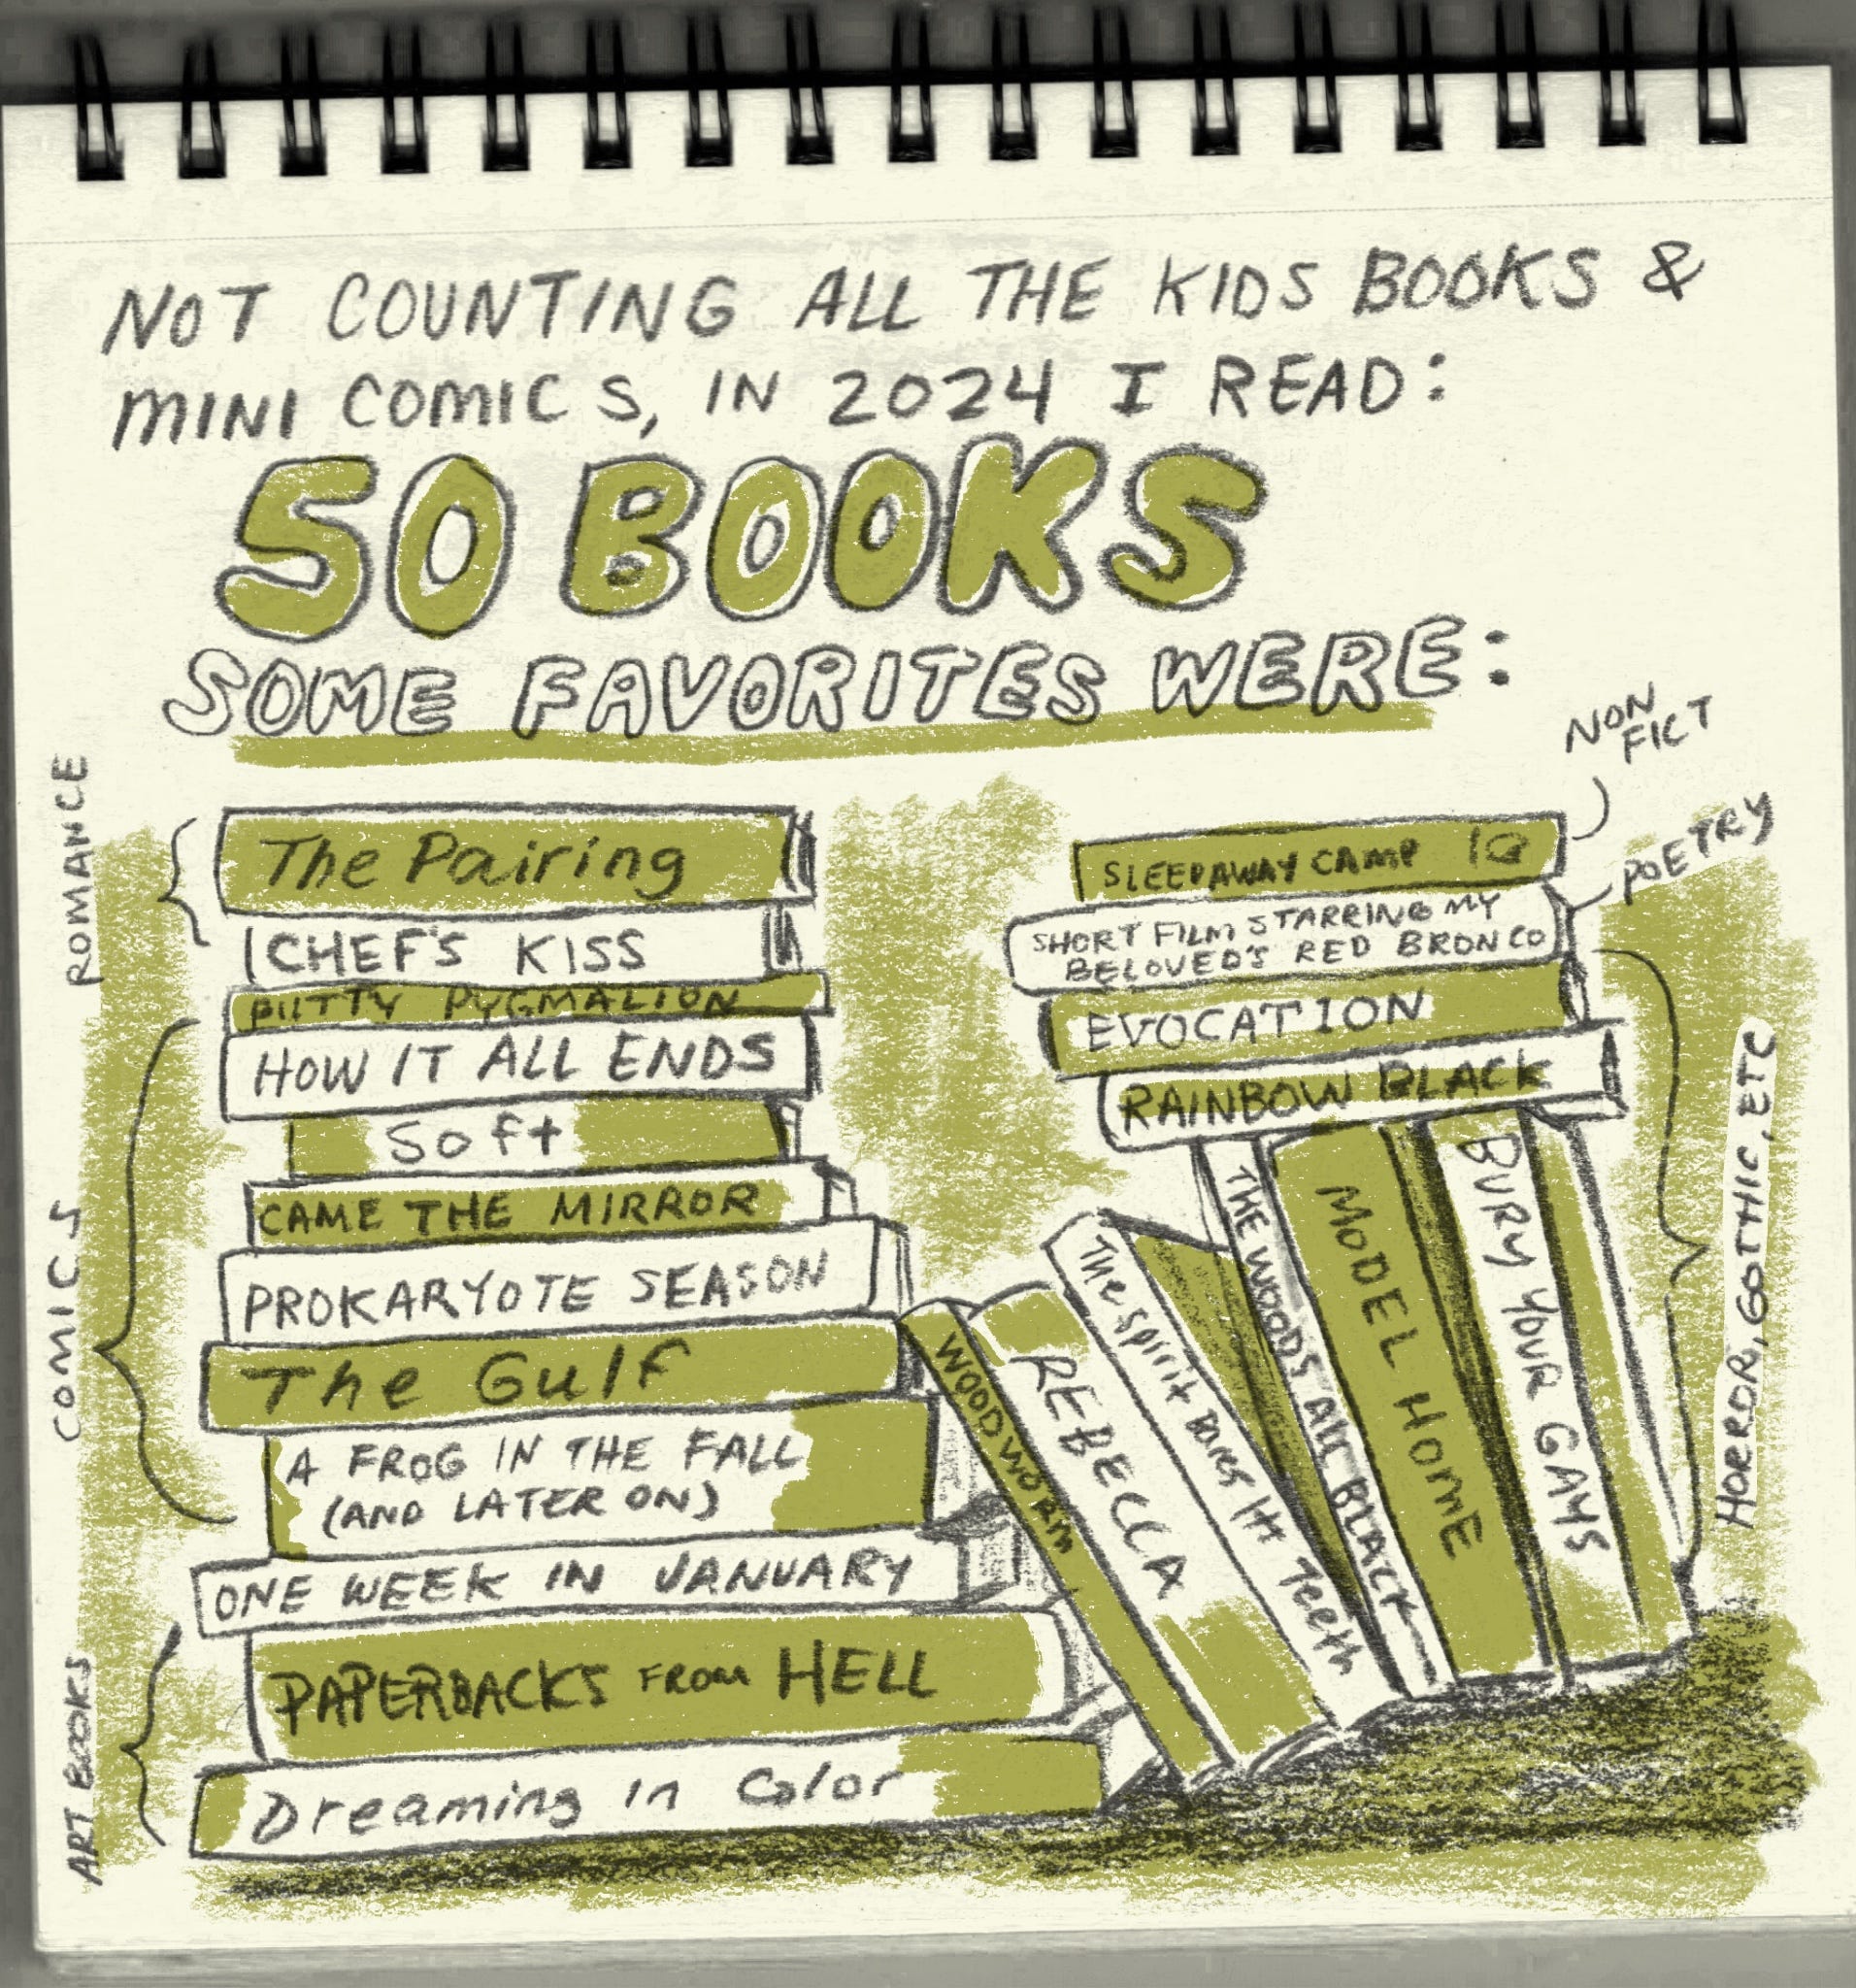 NOT COUNTING ALL THE KIDS BOOKS &
MINI COMICS, IN 2024 I READ:
50 BOOKS
SOME FAVORITES WERE:
ROMANCE
The Pairing
CHEF'S KISS
COMICS
PUTTY PYGMALION
HOW IT ALL ENDS
Soft
CAME THE MIRROR
PROKARYOTE SEASON
The Gulf
A FROG IN THE FALL
(AND LATER ON)
ONE WEEK IN JANUARY
ART BOOKS
PAPERBACKS FROM HELL
Dreaming in Color
NON
FICT
SLEEPAWAY CAMP
POETRY
SHORT FILM STARRING MY
BELOVED'S RED BRONCO
HORROR, GOTHIC, ETC
EVOCATION
RAINBOW BLACK
WOODWORM
REBECCA
The Spirit Bares Its Teeth
THE WOODS All BLACK
MODEL HOME
BURY YOUR GAYS